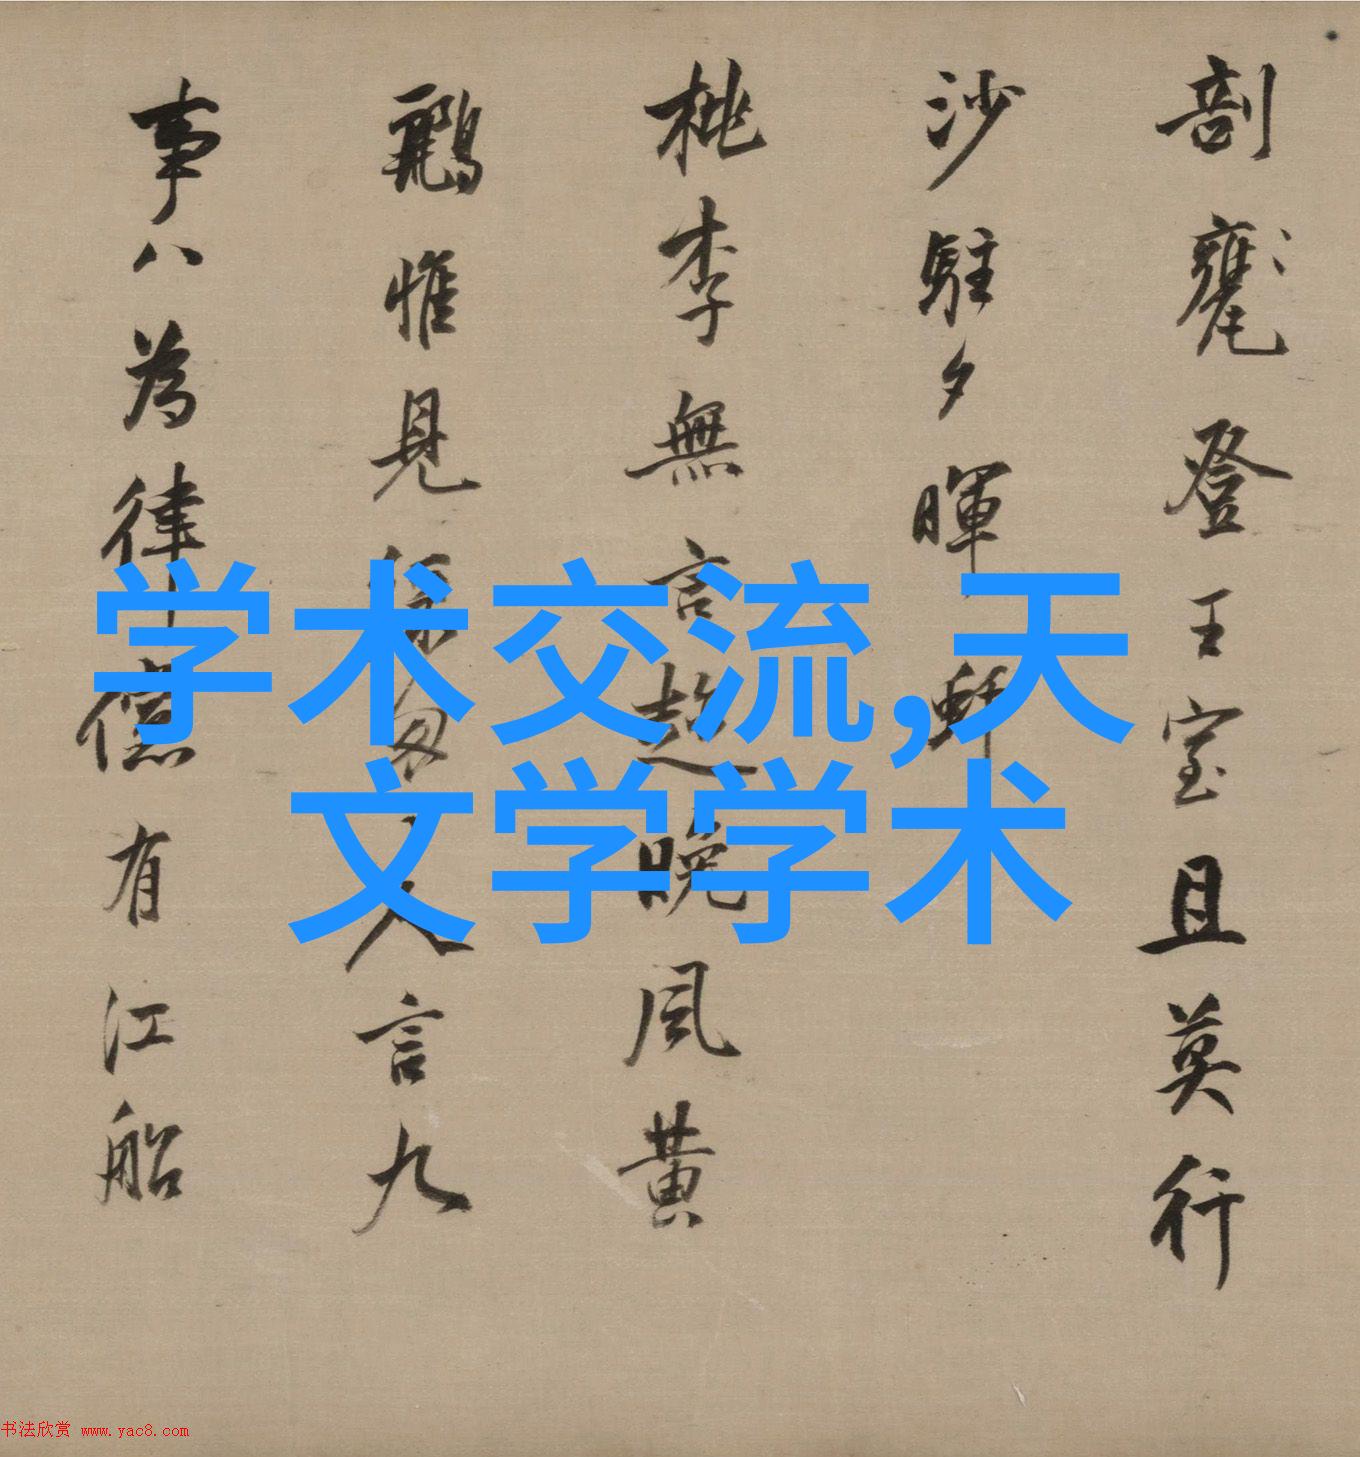 剖甕登王室且莫行
沙駐夕暉
桃李無言超晚風黃
鸝惟見人言九
事八為律偶有江船
学术交流,天
文学学术
书法欣赏 www.yac8.com